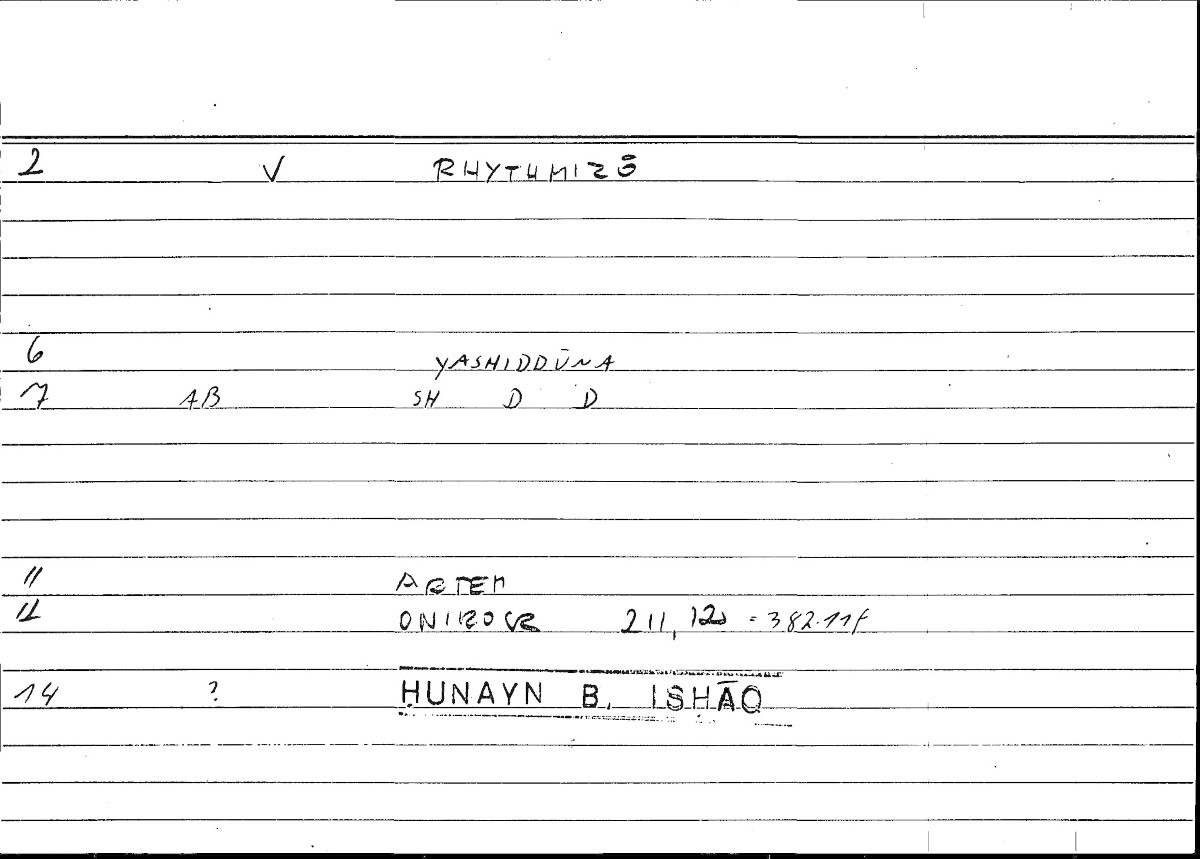 2 V RHYTHMIZŌ
6 YASHIDDŪNA
7 AB SH D D
11 ARTEM
12 ONIROCR 211,12 = 382.11f
14 ? ḤUNAYN B. ISḤĀQ